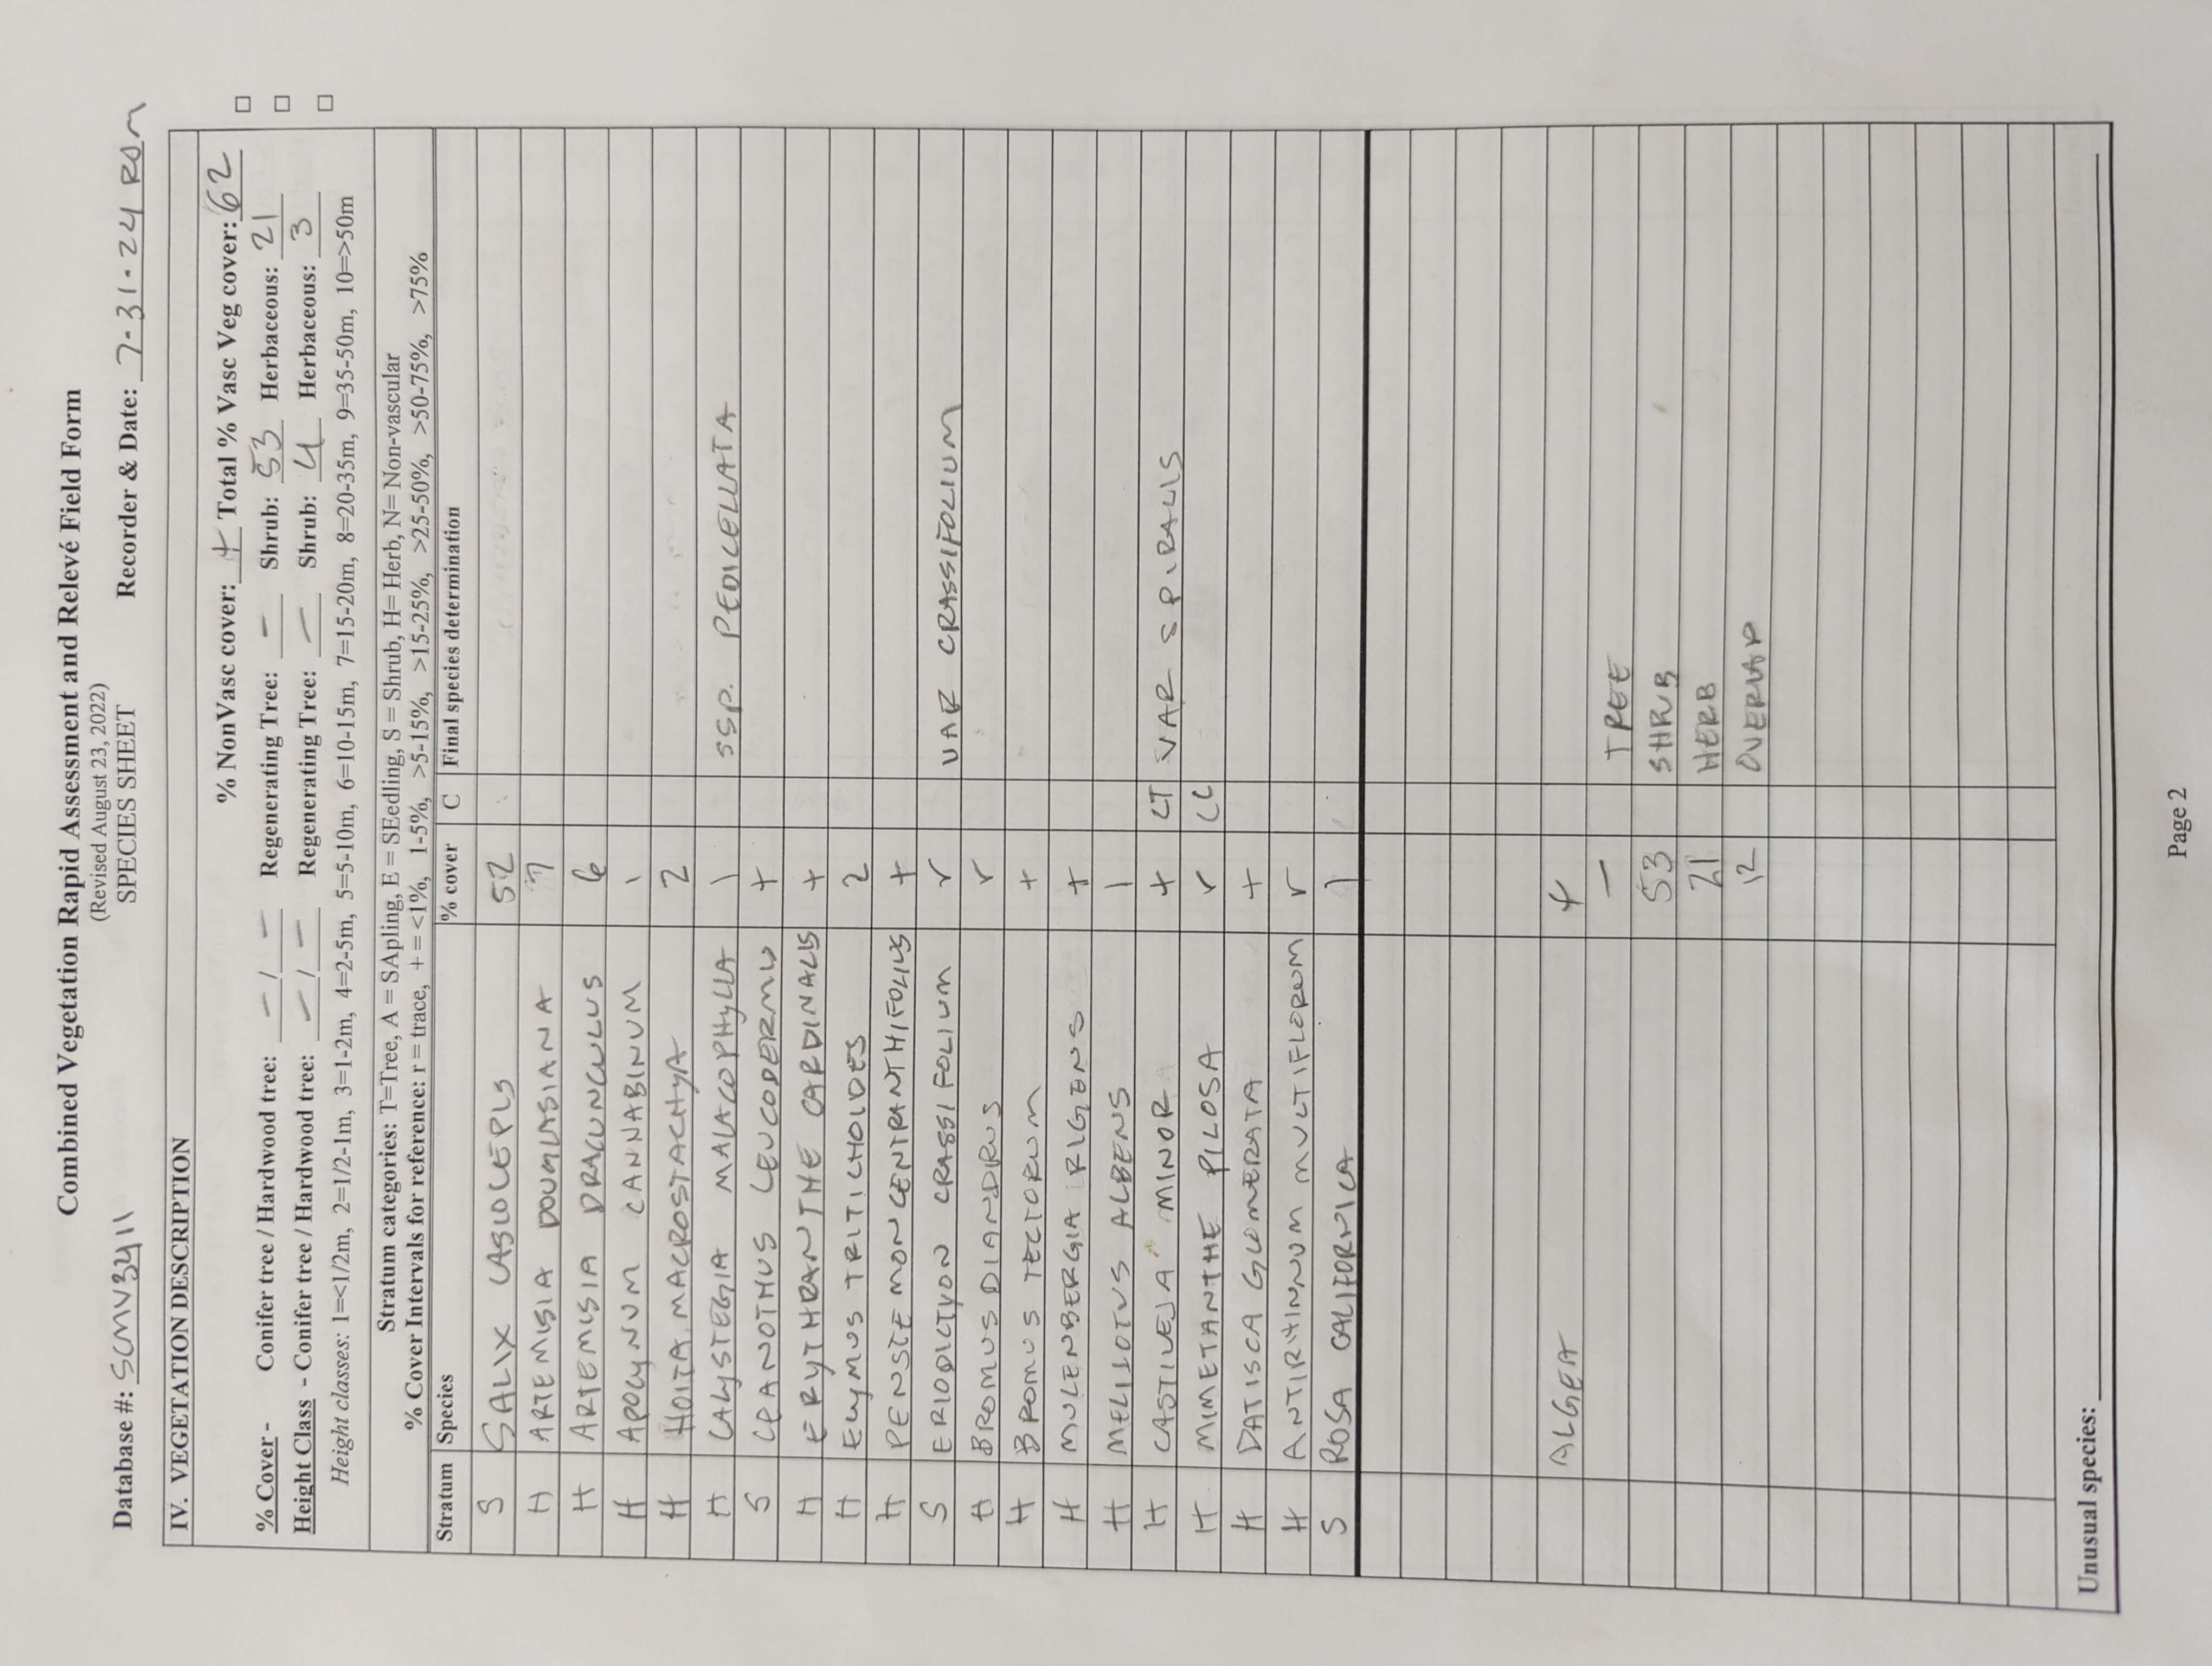 Combined Vegetation Rapid Assessment and Relevé Field Form
(Revised August 23, 2022)
SPECIES SHEET
Database #: SCMV3411 Recorder & Date: 7-31-24 RSM
IV. VEGETATION DESCRIPTION
% NonVasc cover: + Total % Vasc Veg cover: 62
% Cover - Conifer tree / Hardwood tree: - / - Regenerating Tree: - Shrub: 53 Herbaceous: 21 □
Height Class - Conifer tree / Hardwood tree: - / - Regenerating Tree: - Shrub: 4 Herbaceous: 3 □
Height classes: 1=<1/2m, 2=1/2-1m, 3=1-2m, 4=2-5m, 5=5-10m, 6=10-15m, 7=15-20m, 8=20-35m, 9=35-50m, 10=>50m □
Stratum categories: T=Tree, A = SApling, E = SEedling, S = Shrub, H= Herb, N= Non-vascular
% Cover Intervals for reference: r = trace, + = <1%, 1-5%, >5-15%, >15-25%, >25-50%, >50-75%, >75%
Stratum Species % cover C Final species determination
S SALIX LASIOLEPIS 52
H ARTEMISIA DOUGLASIANA 7
H ARTEMISIA DRACUNCULUS 6
H APOCYNUM CANNABINUM 1
H HOITA MACROSTACHYA 2
H CALYSTEGIA MALACOPHYLLA 1 SSP. PEDICELLATA
S CEANOTHUS LEUCODERMIS +
H ERYTHRANTHE CARDINALIS +
H ELYMUS TRITICHOIDES 2
H PENSTEMON CENTRANTHIFOLIUS +
S ERIODICTYON CRASSIFOLIUM r VAR CRASSIFOLIUM
H BROMUS DIANDRUS r
H BROMUS TECTORUM +
H MULENBERGIA RIGENS +
H MELILOTUS ALBENS 1
H CASTILLEJA MINOR + LT VAR SPIRALIS
H MIMETANTHE PILOSA r LL
H DATISCA GLOMERATA +
H ANTIRRHINNUM MULTIFLORUM r
S ROSA CALIFORNICA 1
ALGEA +
- TREE
53 SHRUB
21 HERB
12 OVERLAP
Unusual species:
Page 2